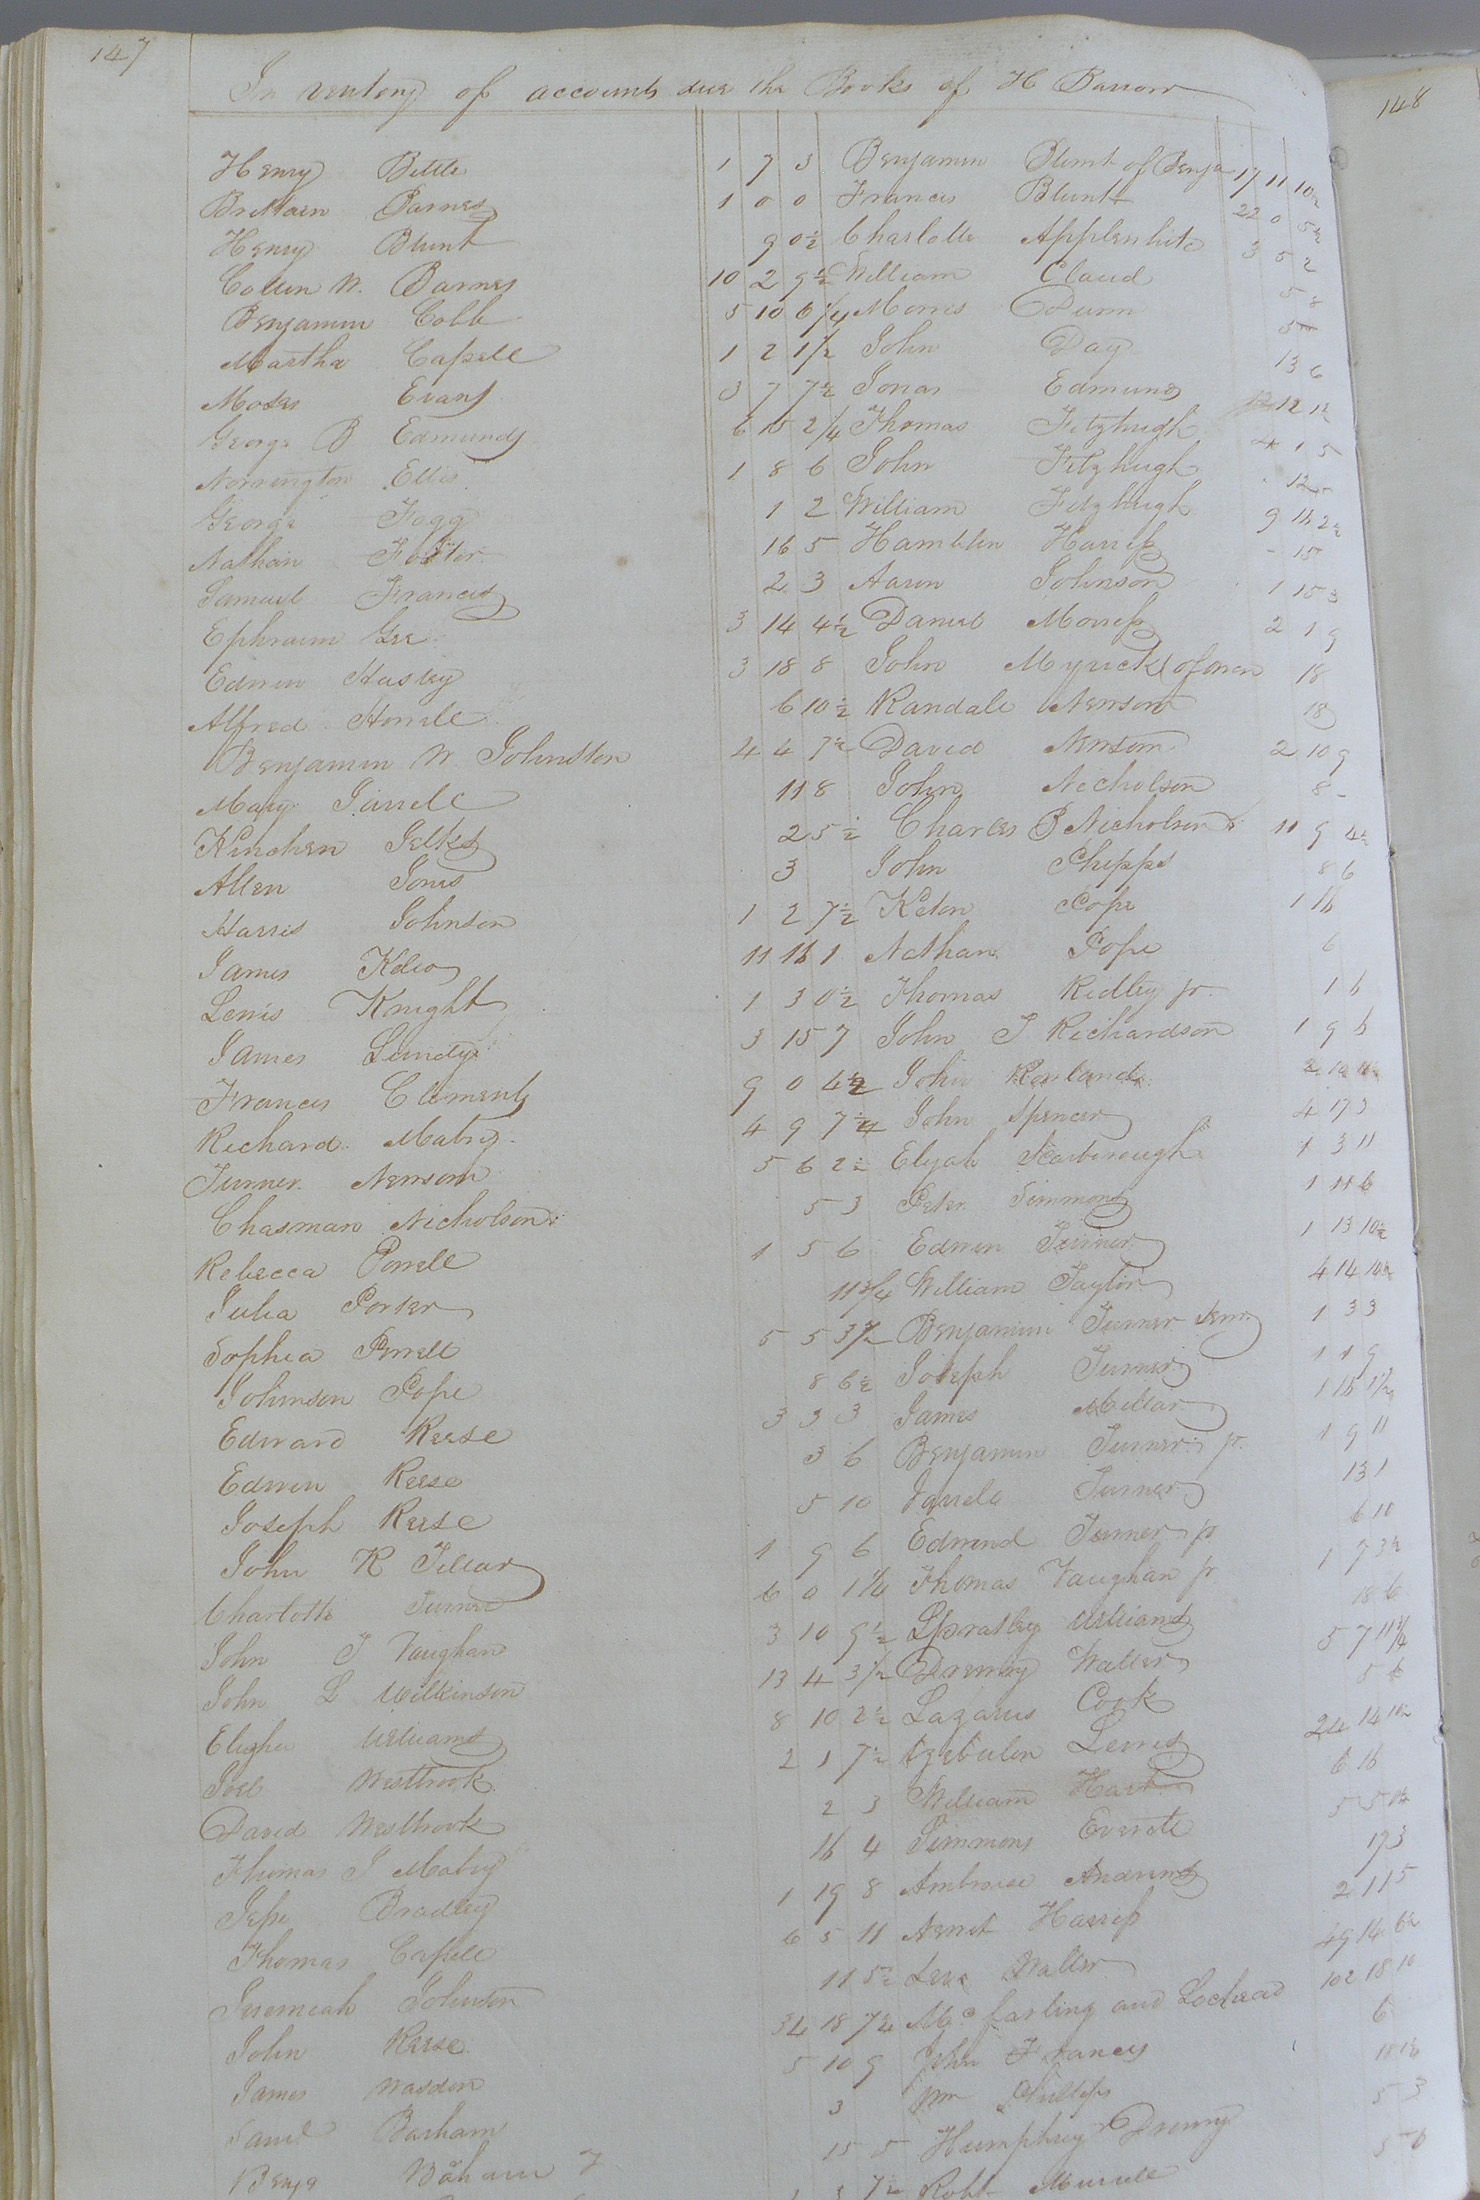 147
148
In ventory of accounts due the Books of H Barrow
Henry Bittle 1 7 3 Benjamin Blunt of Benja 17 11 10½
Brittain Barnes 1 0 0 Francis Blunt 22 0 5½
Henry Blunt 9 0½ Charlotte Applewhite 3 5 2
Collin W. Barnes 10 2 9½ William Claud 5 8
Benjamin Cobb 5 10 6¼ Morris Dunn 5
Martha Capell 1 2 1½ John Day 13 6
Moses Evans 3 7 7½ Jonas Edmunds 12
George B Edmunds 6 15 2¼ Thomas Fitzhugh 4 1 5
Norrington Ellis 1 8 6 John Fitzhugh 12
George Fagg 1 2 William Fitzhugh 9 16 2½
Nathan Foster 16 5 Hamblin Harriss 15
Samuel Francis 2 3 Aaron Johnson 1 15 3
Ephraim Gee 3 14 4½ Daniel Morriss 2 1 9
Edwin Husley 3 18 8 John Myrick of Owen 18
Alfred Howell 6 10½ Randall Newsom 18
Benjamin W Johnston 4 4 7½ David Newsom 2 10 9
Mary Jarrell 11 8 John Nicholson 8 -
Kinchen Jelks 2 5½ Charles B Nicholson 11 9 4½
Allen Jones 3 John Phipps 8 6
Harris Johnson 1 2 7½ Keton Pope 1 16
James Kelso 11 16 1 Nathan Pope 6
Lewis Knight 1 3 0½ Thomas Ridley jr. 1 6
James Lundy 3 15 7 John T Richardson 1 9 6
Francis Clements 9 0 4½ John Rowland
Richard Mabry 4 9 7¼ John Spencer 4 17 3
Turner Newsom 5 6 2½ Elijah Scarborough 1 3 11
Chasman Nicholson 5 3 Peter Simmons 1 11 6
Rebecca Powell 1 5 6 Edwin Turner 1 13 10½
Julia Porter 11¾ William Taylor 4 14 10½
Sophia Powell 5 5 3½ Benjamin Turner Senr 1 3 3
Johnson Pope 8 6½ Joseph Turner 1 1 9
Edward Reese 3 3 3 James Millar 1 16 1½
Edwin Reese 3 6 Benjamin Turner jr. 1 9 11
Joseph Reese 5 10 Jarrele Turner 13 1
John K Tillar 1 9 6 Edmund Turner jr 6 10
Charlotte Turner 6 0 1¼ Thomas Vaughan jr 1 7 3½
John T Vaughan 3 10 9½ Spratley Williams 18 6
John L Wilkinson 13 4 3½ Drewry Waller 5 7 11¾
Elisha Williams 8 10 2½ Lazarus Cook 5 6
Joel Westbrook 2 1 7½ Zebulon Lewis 24 14 10½
David Westbrook 2 3 William Hart 6 16
Thomas J Mabry 16 4 Simmons Everett 5 5
Jesse Bradley 1 19 8 Ambrose Andrews 17 3
Thomas Capell 6 5 11 Newit Harriss 2 11 5
Jeremiah Johnson 11 5½ Levi Waller 49 14 6½
John Reese 34 18 7¼ Mc farling and Lochead 102 18 10
James Wasden 5 10 9 John Francis 6
Saml Barham 3 Wm Phillips
Benja Barham 15 5 Humphrey Drewry 5 3
7½ Robt Murrell 5 6